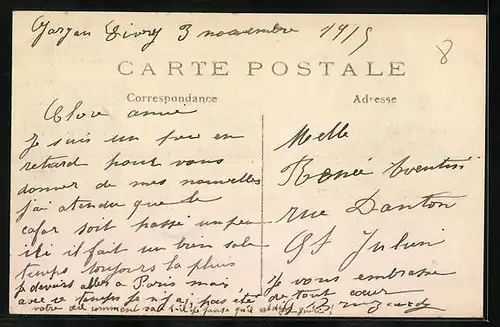 Gargan Livry 3 novembre 1915
8
CARTE POSTALE
Correspondance
Adresse
Chere amie
Je suis un peu en
retard pour vous
donner de mes nouvelles
j'ai atendu que le
cafar soit passé un peu
ici il fait un bien sale
temps toujours la pluis
je devais aller a Paris mais
avec ce temps je n'y ai pas été
votre comment
Melle
Renée
rue Danton
St Julien
Je vous embrasse
de tout cœur